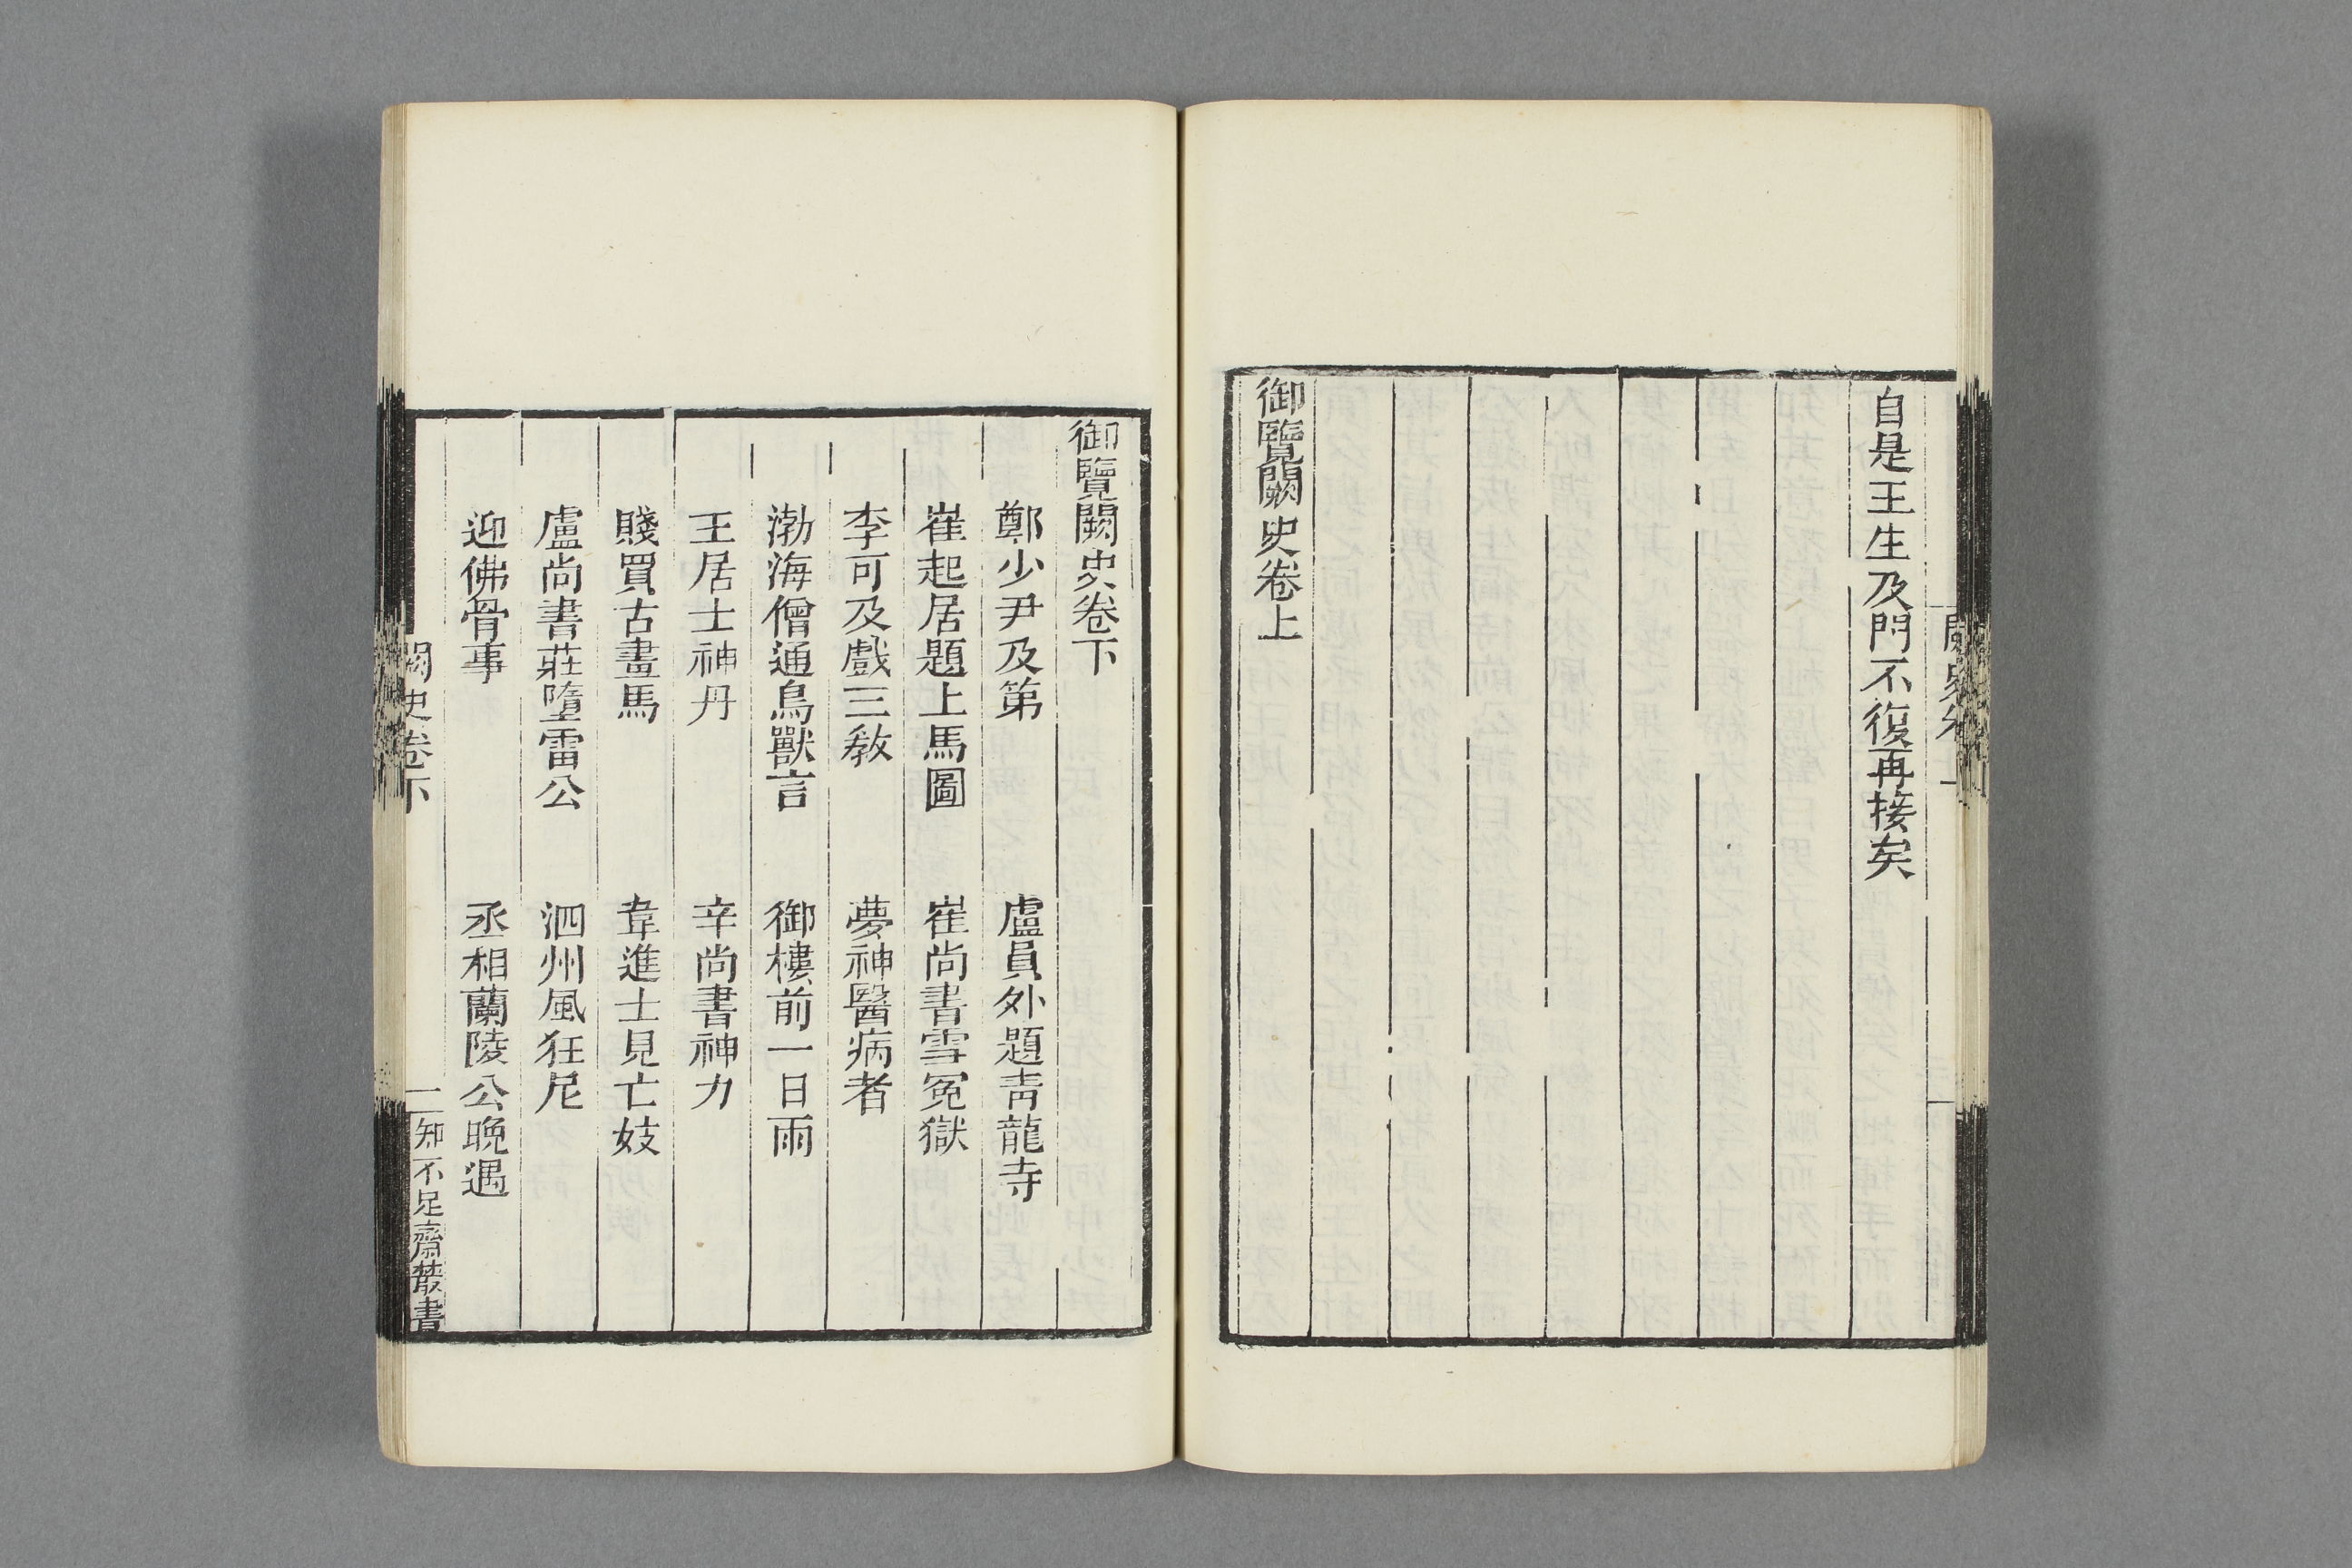 自是王生及門不復再接矣
御覽闕史卷上
御覽闕史卷下
鄭少尹及第　盧員外題青龍寺
崔起居題上馬圖　崔尚書雪冤獄
李可及戲三教　夢神醫病者
渤海僧通鳥獸言　御樓前一日雨
王居士神丹　辛尚書神力
賤買古畫馬　韋進士見亡妓
盧尚書莊墮雷公　泗州風狂尼
迎佛骨事　丞相蘭陵公晚遇
闕史卷下　一　知不足齋叢書